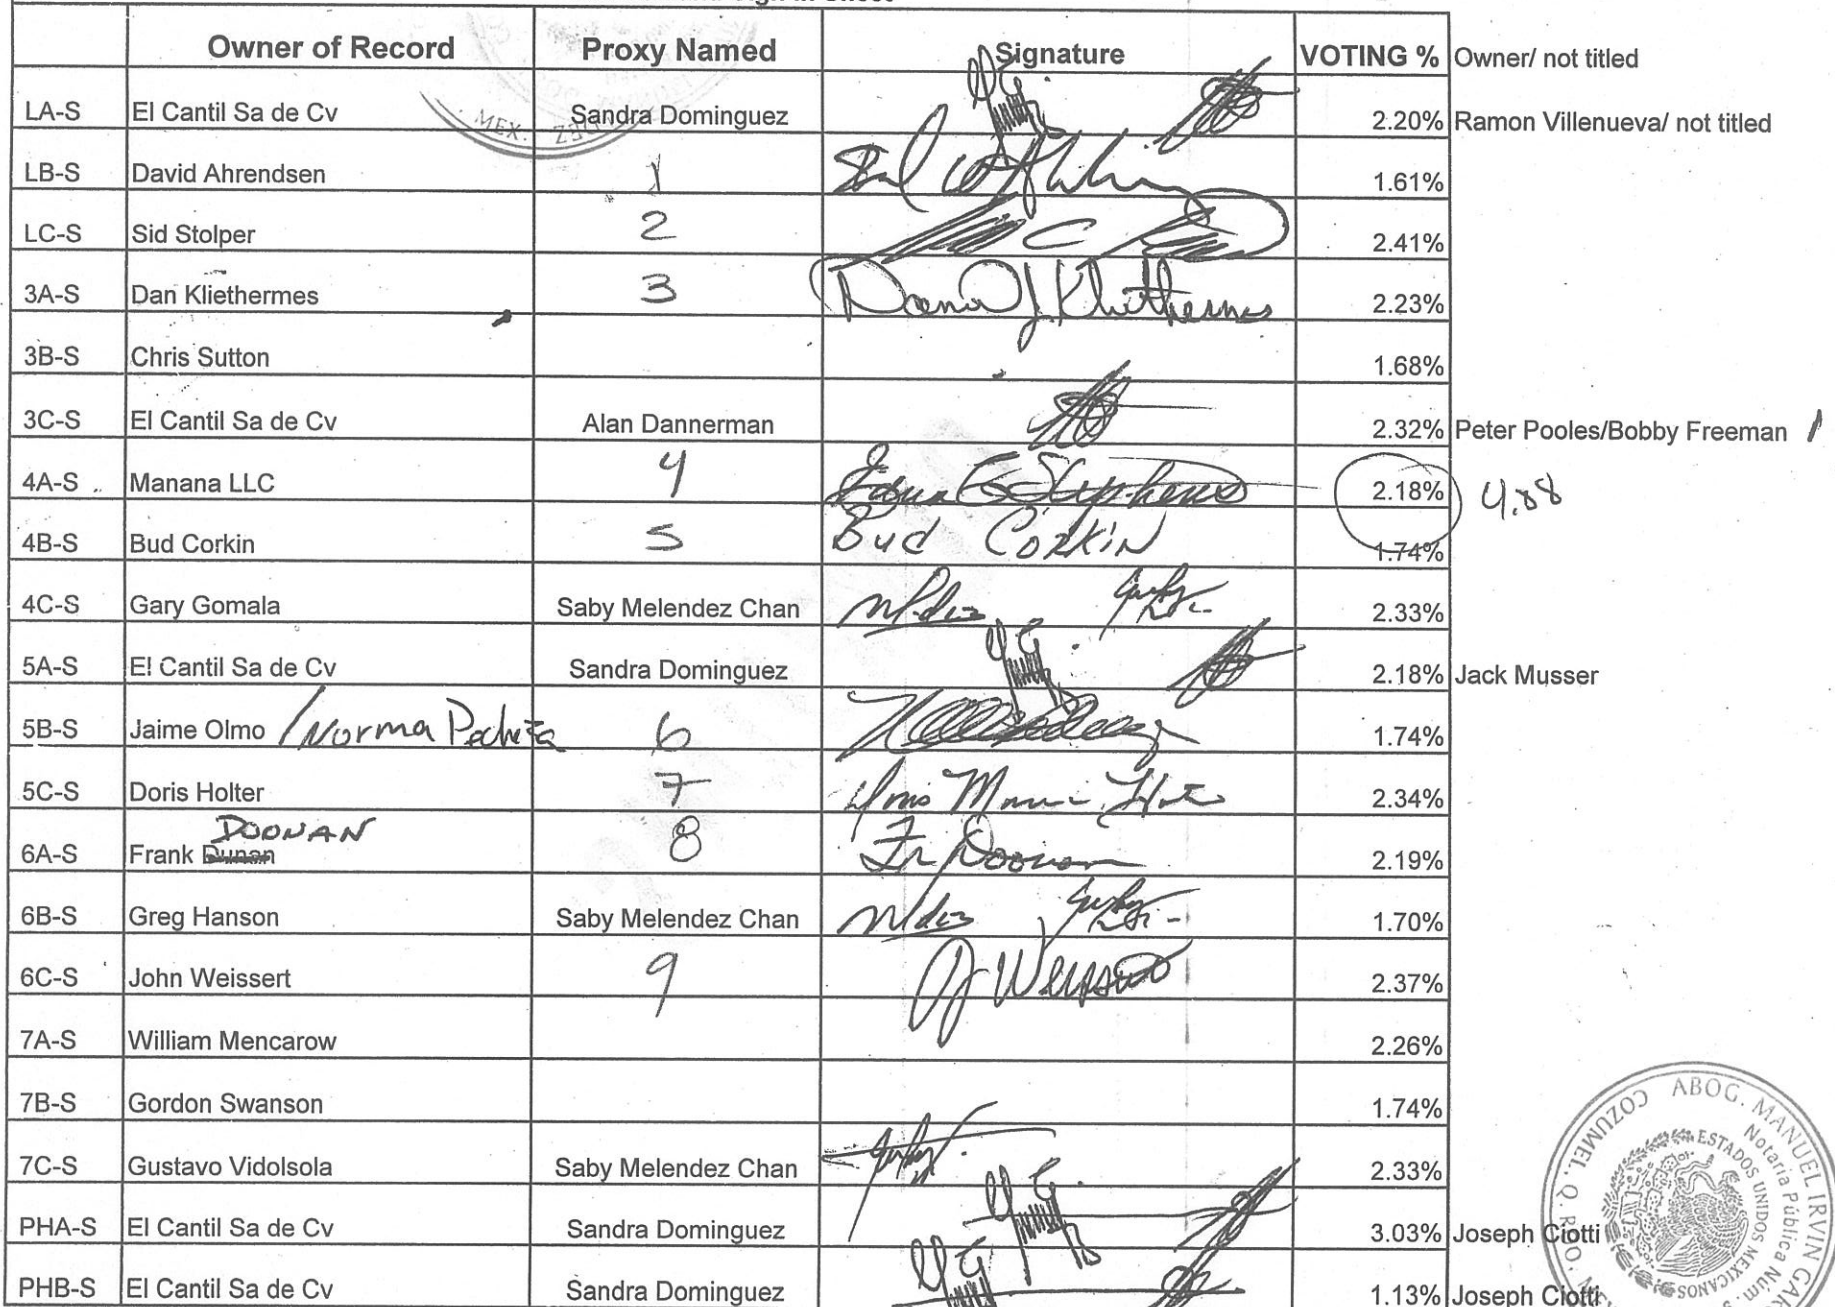 Owner of Record Proxy Named Signature VOTING % Owner/ not titled
LA-S El Cantil Sa de Cv Sandra Dominguez 2.20% Ramon Villenueva/ not titled
MEX.
LB-S David Ahrendsen 1 1.61%
LC-S Sid Stolper 2 2.41%
3A-S Dan Kliethermes 3 Daniel J Kliethermes 2.23%
3B-S Chris Sutton 1.68%
3C-S El Cantil Sa de Cv Alan Dannerman 2.32% Peter Pooles/Bobby Freeman
4A-S Manana LLC 4 Stephens 2.18% 4.08
4B-S Bud Corkin 5 Bud Corkin 1.74%
4C-S Gary Gomala Saby Melendez Chan 2.33%
5A-S El Cantil Sa de Cv Sandra Dominguez 2.18% Jack Musser
5B-S Jaime Olmo /Norma 6 1.74%
5C-S Doris Holter 7 2.34%
DOONAN
6A-S Frank Dunan 8 Fr Doonan 2.19%
6B-S Greg Hanson Saby Melendez Chan 1.70%
6C-S John Weissert 9 J Weissert 2.37%
7A-S William Mencarow 2.26%
7B-S Gordon Swanson 1.74%
7C-S Gustavo Vidolsola Saby Melendez Chan 2.33%
PHA-S El Cantil Sa de Cv Sandra Dominguez 3.03% Joseph Ciotti
PHB-S El Cantil Sa de Cv Sandra Dominguez 1.13% Joseph Ciotti
COZUMEL, Q. ROO. ABOG. MANUEL IRVIN
ESTADOS UNIDOS MEXICANOS
Notaría Pública Núm.